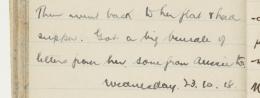 Then went back to her flat & had
supper. Got a big bundle of
letters from her some from Aussie to
Wednesday. 23.10.18.